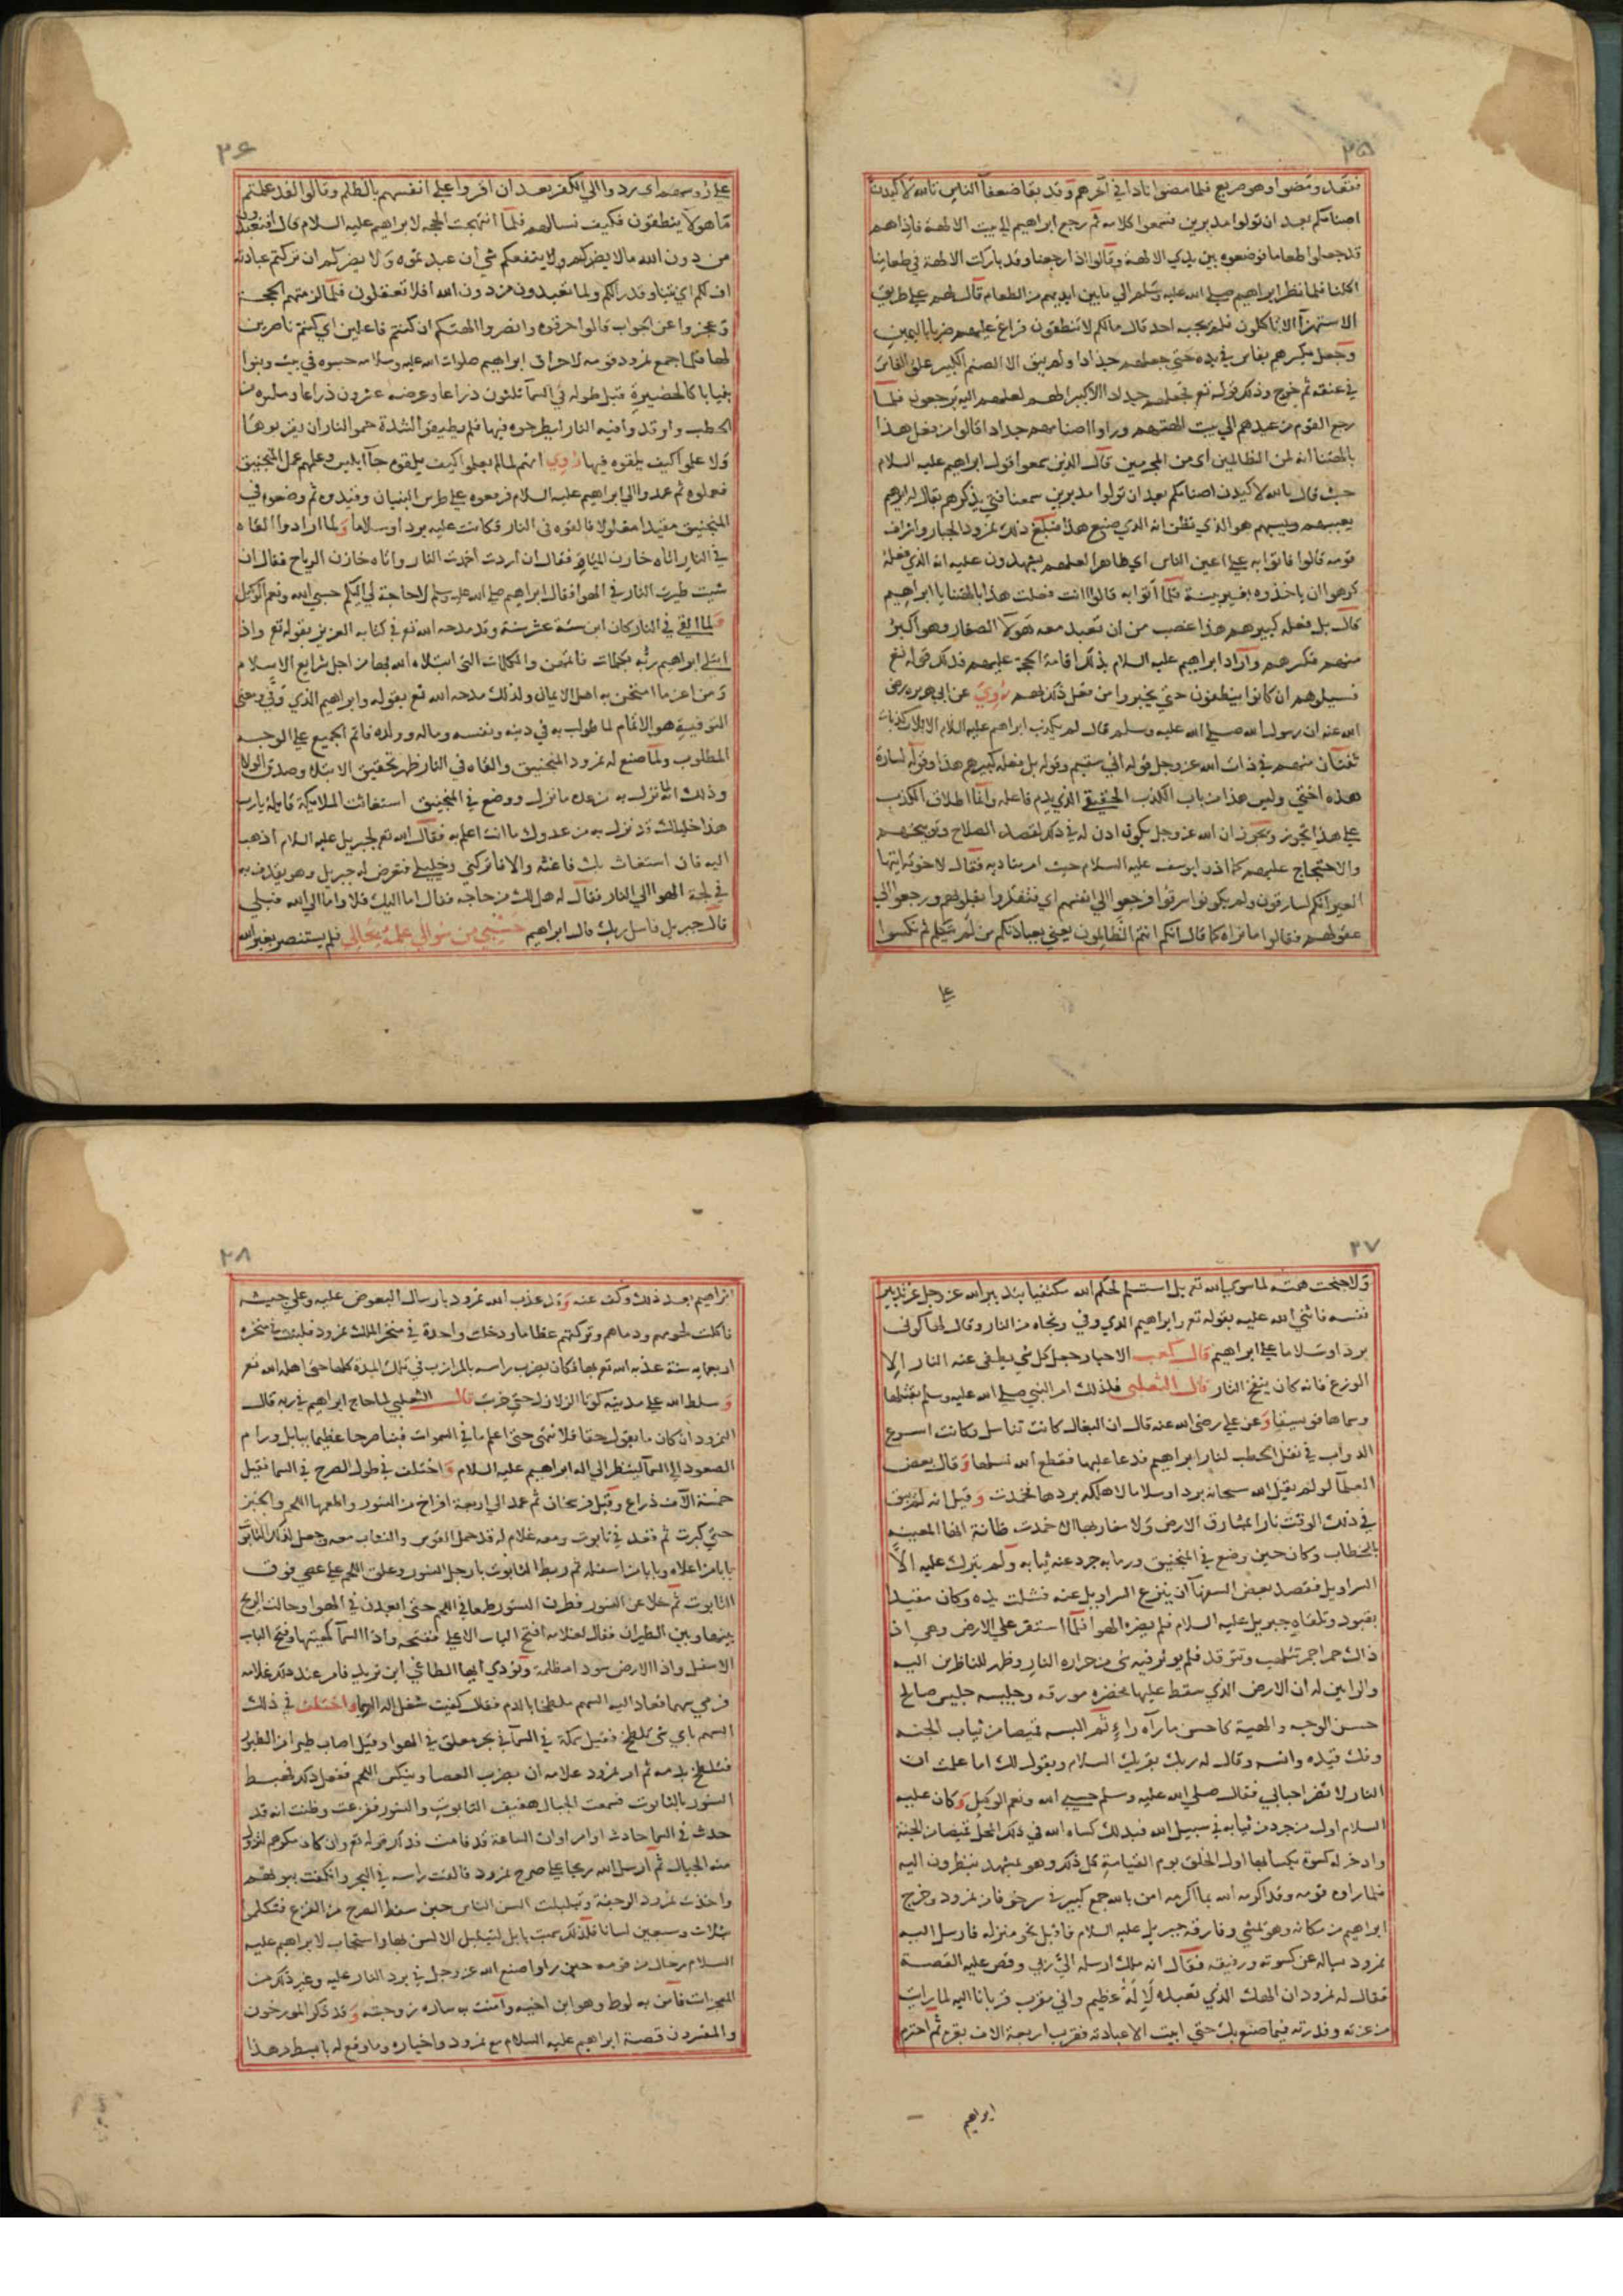 ٣٥
فقعد ومضوا وهو صريع فلما مضوا نادا في آخرهم وقد بقا ضعفآ الناس تالله لاكيدن
اصنامكم بعد ان تولوا مدبرين فسمعوا كلامه ثم رجع ابراهيم الي بيت الالهة فاذا هم
قد جعلوا طعاما فوضعوه بين يدي الالهة وقالوا اذا رجعنا وقد باركت الالهة في طعامنا
اكلنا فلما نظر ابراهيم صلي الله عليه وسلم الي ما بين ايديهم من الطعام قال لهم علي طريق
الاستهزآ الا تاكلون فلم يجبه احد قال مالكم لا تنطقون فراغ عليهم ضربا باليمين
وجعل يكسرهم بفاس في يده حتي جعلهم جذاذا ولم يبق الا الصنم الكبير علق الفاس
في عنقه ثم خرج وذلك قوله تع فجعلهم جذاذا الا كبيرا لهم لعلهم اليه يرجعون فلما
رجع القوم من عيدهم الي بيت الهتهم وراوا اصنامهم جذاذا قالوا من فعل هذا
بالهتنا انه لمن الظالمين اي من المجرمين قال الذين سمعوا قول ابراهيم عليه السلام
حيث قال تالله لاكيدن اصنامكم بعد ان تولوا مدبرين سمعنا فتي يذكرهم يقال له ابراهيم
يعيبهم ويسبهم هو الذي نظن انه الذي صنع هذا فبلغ ذلك نمرود الجبار واشراف
قومه قالوا فاتوا به علي اعين الناس اي ظاهرا لعلهم يشهدون عليه انه الذي فعله
كرهوا ان ياخذوه بغير بينة فلما أتوا به قالوا اانت فعلت هذا بالهتنا يا ابراهيم
قال بل فعله كبيرهم هذا غضب من ان تعبد معه هولآ الصغار وهو اكبر
منهم فكسرهم وأراد ابراهيم عليه السلام بذلك اقامة الحجة عليهم فذلك قوله تع
فسيلوهم ان كانوا ينطقون حتي يخبروا من فعل ذلك بهم رُوي عن ابي هريره رضي
الله عنه ان رسول الله صلي الله عليه وسلم قال لم يكذب ابراهيم عليه السلام الا ثلاث كذبات
ثنتان منهم في ذات الله عز وجل قوله اني سقيم وقوله بل فعله كبيرهم هذا وقوله لسارة
هذه اختي وليس هذا من باب الكذب الحقيقي الذي يذم فاعله وانما اطلاق الكذب
علي هذا تجوز ويجوز ان الله عز وجل يكون اذن له في ذلك لقصد الصلاح وتوبيخهم
والاحتجاج عليهم كما اذن ليوسف عليه السلام حيث امر مناديه فقال لاخوته ايتها
العير انكم لسارقون ولم يكونوا سرقوا فرجعوا الي انفسهم اي فتفكروا بقلوبهم ورجعوا الي
عقولهم فقالوا ما نراه كما قال انكم انتم الظالمون يعني بعبادتكم من لم يتكلم ثم نكسوا
علي
٣٦
علي رؤسهم اي ردوا الي الكفر بعد ان اقروا علي انفسهم بالظلم وقالوا لقد علمتم
ما هولآ ينطقون فكيف نسالهم فلما اتجهت الحجه لابراهيم عليه السلام قال افتعبدون
من دون الله ما لا يضركم ولا ينفعكم شي أن عبدتموه ولا يضركم ان تركتم عبادته
اف لكم اي تبا وقذرا لكم ولما تعبدون من دون الله افلا تعقلون فلما الزمتهم الحجة
وعجزوا عن الجواب قالوا حرقوه وانصروا الهتكم ان كنتم فاعلين اي كنتم ناصرين
لها فلما جمع نمرود قومه لاحراق ابراهيم صلوات الله عليه وسلامه حبسوه في بيت وبنوا
بنيانا كالحضيرة قيل طوله في السمآ ثلثون ذراعا وعرضه عشرون ذراعا وملوه من
الحطب واوقدوا فيه النار ليطرحوه فيها فلم يطيقوا لشدة حمو النار ان يقربوها
ولا علموا كيف يلقوه فيها رُوي انهم لما لم يعلموا كيف يلقوه جآ ابليس وعلمهم عمل المنجنيق
فعملوه ثم عمدوا الي ابراهيم عليه السلام فرفعوه علي راس البنيان وقيدوه ثم وضعوه في
المنجنيق مقيدا مغلولا فالقوه في النار فكانت عليه بردا وسلاما ولما ارادوا القاه
في النار اتاه خازن المياه فقال ان اردت اخمدت النار واتاه خازن الرياح فقال ان
شيت طيرت النار في الهوا فقال ابراهيم صلي الله عليه وسلم لا حاجة لي اليكم حسبي الله ونعم الوكيل
ولما القي في النار كان ابن ستة عشر سنة وقد مدحه الله تع في كتابه العزيز بقوله تع واذ
ابتلي ابراهيم ربُه بكلمات فاتمهن والكلمات التي ابتلاه الله بها من اجل شرايع الاسلام
ومن اعز ما امتحن به اهل الايمان ولذلك مدحه الله تع بقوله وابراهيم الذي وَفّي ومعني
التوفية هو الاتمام لما طولب به في دينه ونفسه وماله وولده فاتم الجميع علي الوجه
المطلوب ولما صنع له نمرود المنجنيق والقاه في النار ظهر تحقيق الابتلاء وصدق الولا
وذلك انه لما نزل به من عدوه ما نزل ووضع في المنجنيق استغاثت الملايكة قايلة يا رب
هذا خليلك قد نزل به من عدوك ما انت اعلم به فقال الله تع لجبريل عليه السلام اذهب
اليه فان استغاث بك فاغثه والا فاتركني وخليلي فتعرض له جبريل وهو يقذف به
في لجة الهوا الي النار فقال له هل لك من حاجه فقال اما اليك فلا واما الي الله فبلي
قال جبريل فاسل ربك قال ابراهيم حَسْبي من سُوالي علمُه بحَالي فلم يستنصر بغير الله
٣٧
ولا جنحت همته لما سوي الله تع بل استسلم لحكم الله مكتفيا بتدبير الله عز وجل عن تدبير
نفسه فاثني الله عليه بقوله تع وابراهيم الذي وفي ونجاه من النار وقال لها كوني
بردا وسلاما علي ابراهيم قال كعب الاحبار جعل كل شي يطفي عنه النار الا
الوزغ فانه كان ينفخ النار قال الثعلبي فلذلك امر النبي صلي الله عليه وسلم بقتلها
وسماها فويسيقا وعن علي رضي الله عنه قال ان البغال كانت تتناسل وكانت اسرع
الدواب في نقل الحطب لنار ابراهيم فدعا عليها فقطع الله نسلها وقال بعض
العلمآ لو لم يقل الله سبحانه بردا وسلاما لاهلكه بردها فخمدت وقيل انه لم يبق
في ذلك الوقت نارا بمشارق الارض ولا مغاربها الا خمدت ظانة انها المعنيه
بالخطاب وكان حين وضع في المنجنيق ورما به جرد عنه ثيابه ولم يترك عليه الا
السراويل فقصد بعض السفهآ أن ينزع السراويل عنه فشلت يده وكان مقيدا
بقيود وتلقاه جبريل عليه السلام فلم يضره الهوا فلما استقر علي الارض وهي اذ
ذاك جمرا تتلهب وتتوقد فلم يوثر فيه شي من حراره النار وظهر للناظرين اليه
والرايين له ان الارض الذي سقط عليها مخضره مورقه وجليسه جليس صالح
حسن الوجه والهية كاحسن ما رآه راءٍ ثم البسه قميصا من ثياب الجنه
وفك قيده وانسه وقال له ربك يقريك السلام ويقول لك اما علمت ان
النار لا تضر احبابي فقال صلي الله عليه وسلم حسبي الله ونعم الوكيل وكان عليه
السلام اول من جرد من ثيابه في سبيل الله فبدلك كساه الله في ذلك المحل قميصا من الجنة
وادخر له كسوة يكسا بها اول الخلق يوم القيامة كل ذلك وهو بمشهد ينظرون اليه
فلما راوه قومه وقد اكرمه الله بما اكرمه امن بالله جمع كبير في سر خوفا من نمرود وخرج
ابراهيم من مكانه وهو يمشي وفارقه جبريل عليه السلام فاقبل نحو منزله فارسل اليه
نمرود يساله عن كسوته ورفيقه فقال انه ملك ارسله الي ربي وقص عليه القصة
فقال له نمرود ان الهك الذي تعبده لإله عظيم واني مقرب قربانا اليه لما رايت
من عزته وقدرته فيما صنع بك حتي ابيت الا عبادته فقرب اربعة الاف بقره ثم احترم
ابراهيم
٣٨
ابراهيم بعد ذلك وكف عنه وقد عذب الله نمرود بارسال البعوض عليه وعلي جيشه
فاكلت لحومهم ودماهم وتركتهم عظاما ودخلت واحدة في منخر الملك نمرود فلبثت في منخره
اربعمايه سنة عذبه الله تع بها فكان يضرب راسه بالمرازب في تلك المدة كلها حتي اهلكه الله تع
وسلط الله علي مدينه كوثا الزلازل حتي خربت قال الثعلبي لما حاج ابراهيم في ربه قال
النمرود ان كان ما يقول حقا فلا نتهي حتي اعلم ما في السموات فبنا صرحا عظيما ببابل ورام
الصعود الي السمآ لينظر الي اله ابراهيم عليه السلام واختلف في طول الصرح في السما فقيل
خمسة آلاف ذراع وقيل فرسخان ثم عمد الي اربعة افراخ من النسور واطعمها اللحم والخبز
حتي كبرت ثم قعد في تابوت ومعه غلام له قد حمل القوس والنشاب معه وجعل لذلك التابوت
بابا من اعلاه وبابا من اسفله ثم ربط التابوت بارجل النسور وعلق اللحم علي عصي فوق
التابوت ثم خلا عن النسور فطرت النسور طمعا في اللحم حتي ابعدن في الهوا وحالت الريح
بينها وبين الطيران فقال لغلامه افتح الباب الاعلي ففتحه واذا السمآ كهيتها وفتح الباب
الاسفل واذا الارض سودا مظلمة ونودي ايها الطاغي اين تريد فامر عند ذلك غلامه
فرمي بسهم فعاد اليه السهم ملطخا بالدم فقال كفيت شغل اله السما واختلف في ذلك
السهم باي شي تلطخ فقيل سمكة في السمآ في بحر معلق في الهوا وقيل اصاب طيرا من الطير
فتلطخ بدمه ثم امر نمرود غلامه ان يضرب العصا وينكس اللحم ففعل ذلك فهبط
النسور بالتابوت فسمعت الجبال هفيف التابوت والنسور ففزعت وظنت انه قد
حدث في السما حادث او امر او ان الساعة قد قامت فذلك قوله تع وان كاد مكرهم لتزول
منه الجبال ثم ارسل الله ريحا علي صرح نمرود فالقت راسه في البحر وانكفت بيوتهم
واخذت نمرود الرجفة وتبلبلت السن الناس حين سقط الصرح من الفزع فتكلموا
بثلاث وسبعين لسانا فلذلك سميت بابل لتبلبل الالسن بها واستجاب لابراهيم عليه
السلام رجال من قومه حين راوا صنع الله عز وجل في برد النار عليه وغير ذلك من
المعجزات فآمن به لوط وهو ابن اخيه وآمنت به ساره زوجته وقد ذكر المورخون
والمفسرون قصة ابراهيم عليه السلام مع نمرود واخباره وما وقع له بابسط من هذا